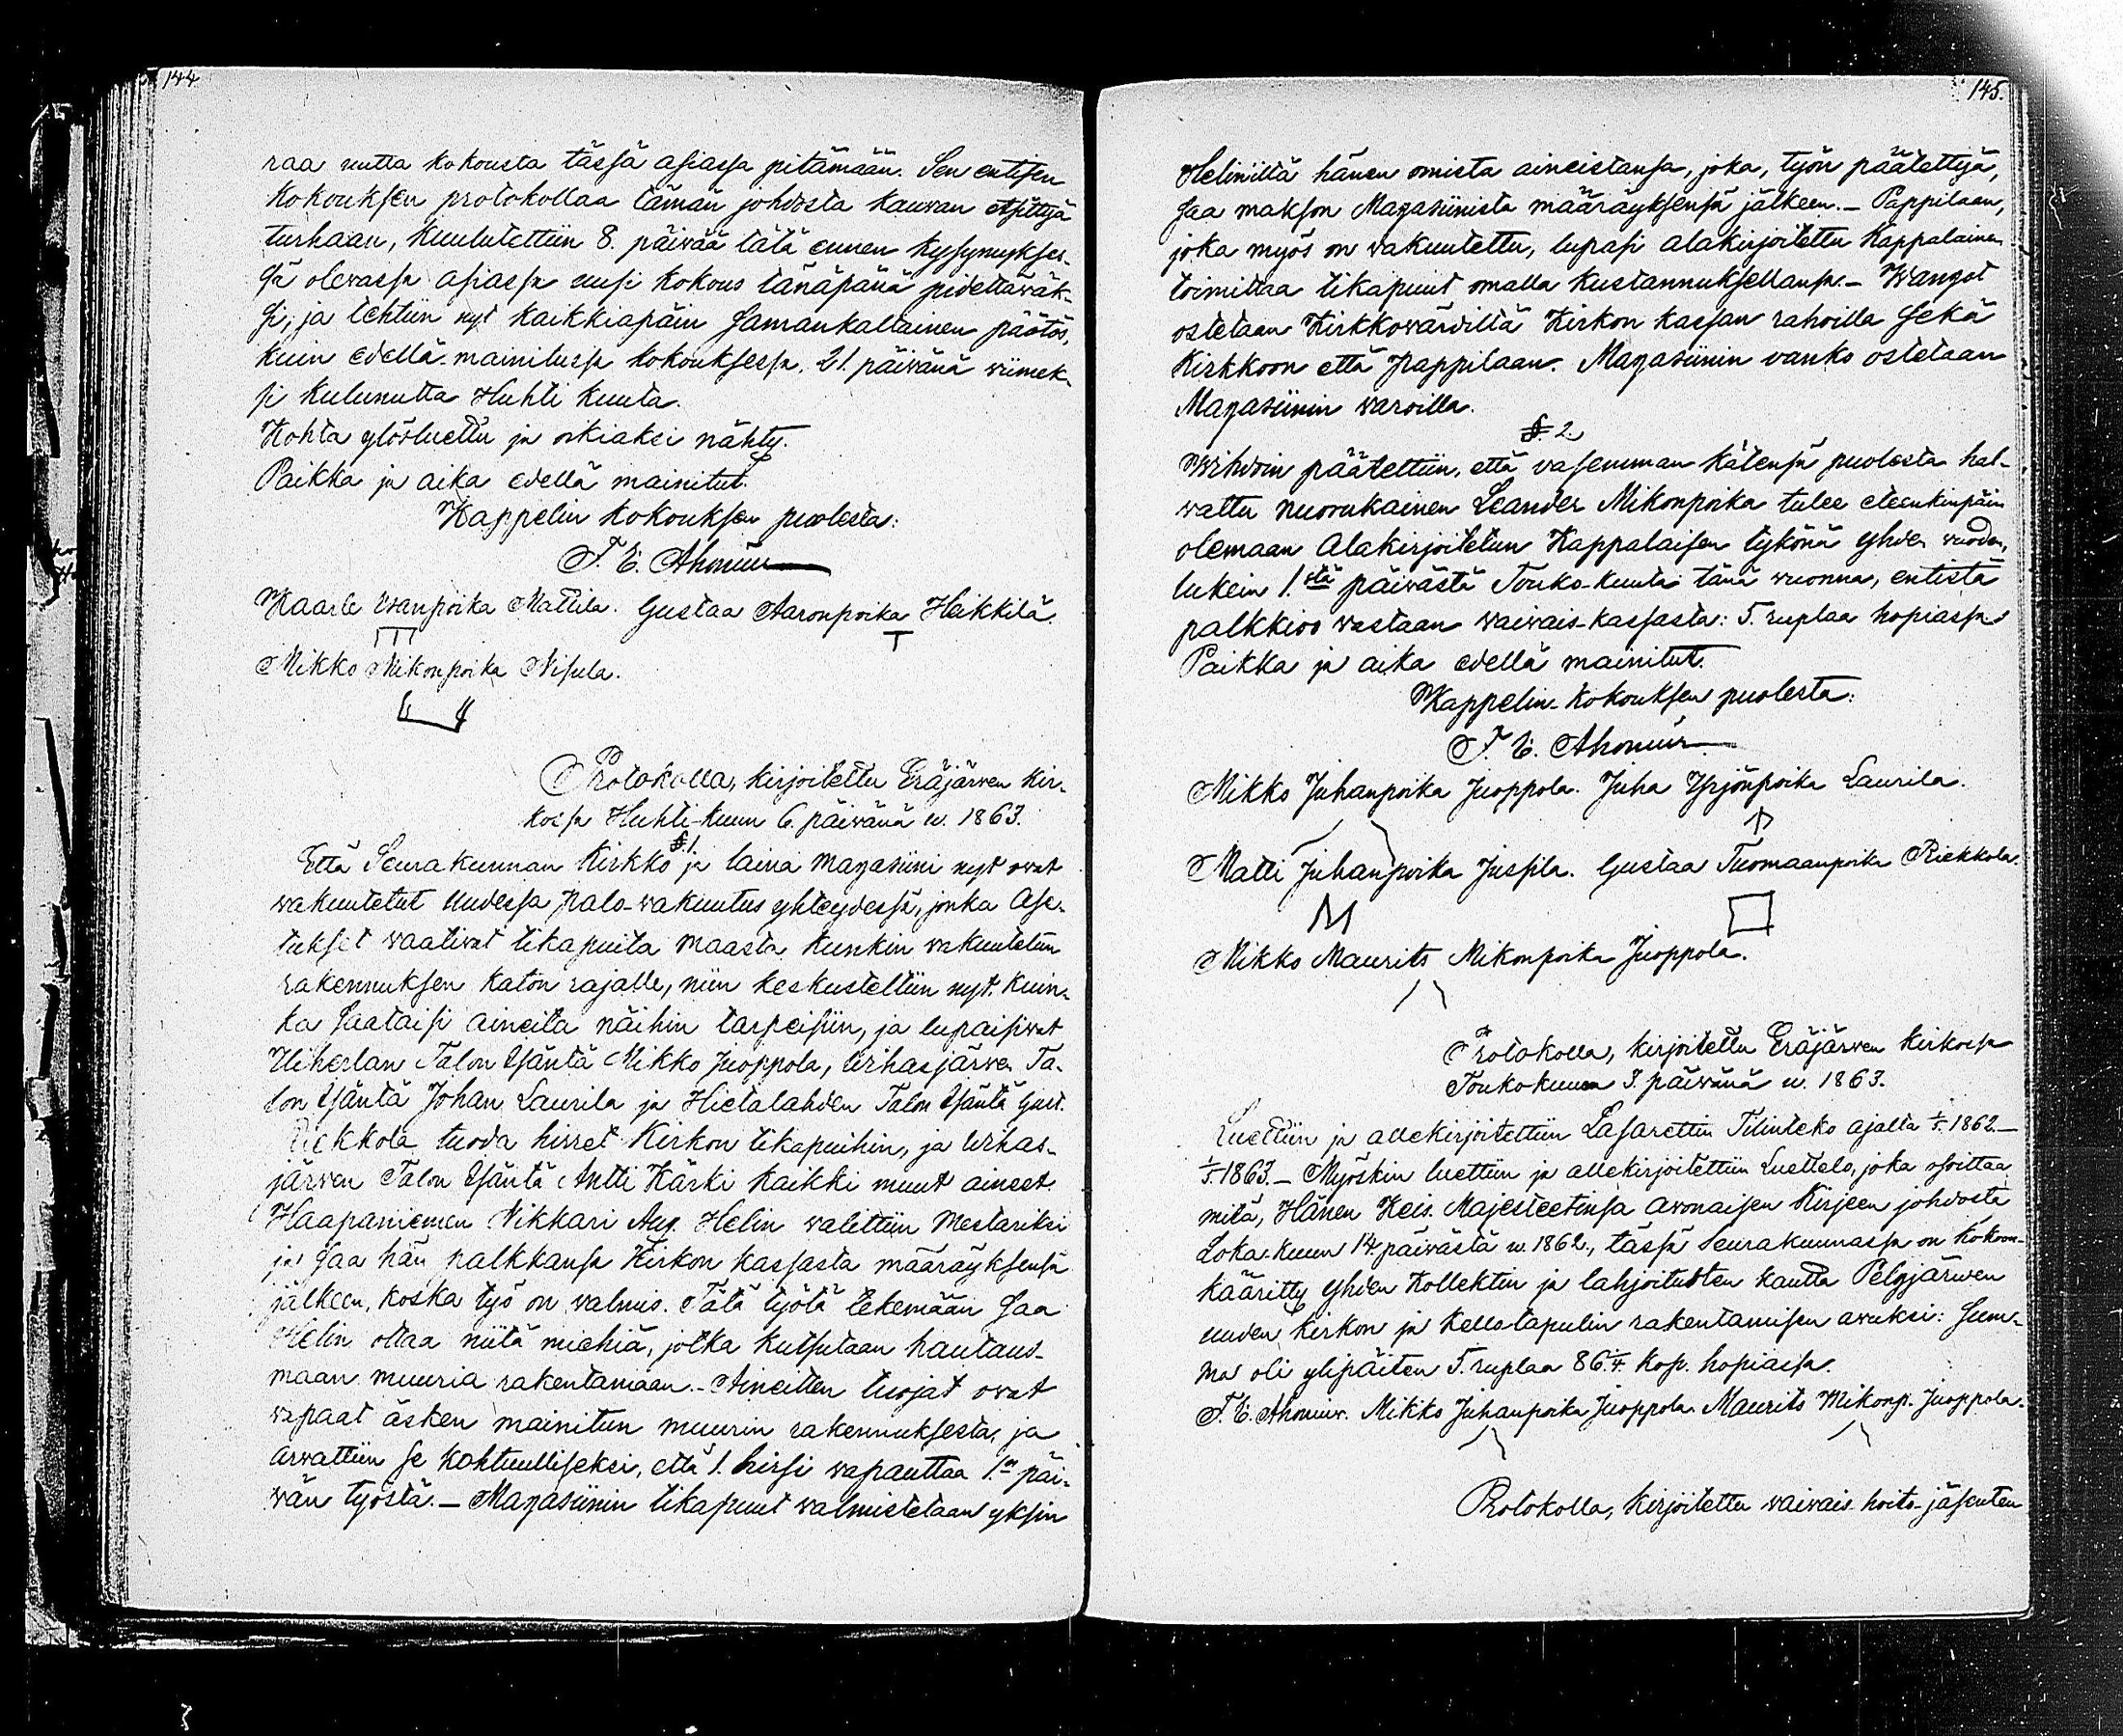 144
raa uutta kokousta tässä asiassa pitämään. Sen entisen
Kokouksen protokollaa tämän johdosta kauwan etsittyä
turhaan, kuulutettiin 8. päivää tätä ennen kysymykses-
sä olevassa asiassa uusi kokous tänäpänä pidettäwäk-
si; ja tehtiin nyt kaikkiapäin samankaltainen päätös,
kuin edellä-mainitussa kokouksessa, 21. päivänä wiimek-
si kulunutta Huhti kuuta.
Kohta ylösluettu ja oikiaksi nähty.
Paikka ja aika edellä mainitut.
Kappelin kokouksen puolesta:
F. E. Ahonius
Kaarle Iisanpoika Mattila. Gustaa Aaronpoika Heikkilä.
Mikko Mikonpoika Nisula.
Protokolla, kirjoitettu Eräjärwen Kir-
kossa Huhti-kuun 6. päivänä w. 1863.
§ 1.
Että Seurakunnan Kirkko ja laina Magasiini nyt ovat
wakuutetut Uudessa palo-wakuutus yhteydessä, jonka Ase-
tukset waatiwat tikapuita maasta kunkin wakuutetun
rakennuksen katon rajalle, niin keskusteltiin nyt. kuin-
ka saataisi aineita näihin tarpeisiin, ja lupaisiwat
Uiherlan Talon Isäntä Mikko Juoppola, Uihasjärwen Ta-
lon Isäntä Johan Laurila ja Hietalahden Talon Isäntä Gust.
Riekkola tuoda hirret Kirkon tikapuihin, ja Uihas-
järwen Talon Isäntä Antti Kärki kaikki muut aineet.
Haapaniemen Nikkari Aug. Helin walittiin Mestariksi
ja saa hän palkkansa Kirkon kassasta määräyksensä
jälkeen, koska työ on walmis. Tätä työtä tekemään saa
Helin ottaa niitä miehiä, jotka kutsutaan hautaus-
maan muuria rakentamaan. - Aineitten tuojat ovat
wapaat äsken mainitun muurin rakennuksesta, ja
arwattiin se kohtuulliseksi, että 1. hirsi wapauttaa 1.en päi-
wän työstä. — Magasiinin tikapuut walmistetaan yksin
145.
Heliniltä hänen omista aineistansa, joka, työn päätettyä,
saa makson Magasiinista määräyksensä jälkeen. — Pappilaan,
joka myös on vakuutettu, lupasi alakirjoitettu Kappalainen
toimittaa tikapuut omalla kustannuksellansa. — Wangot
ostetaan Kirkkowärdiltä Kirkon kassan rahoilla sekä
Kirkkoon että pappilaan. Magasiinin vanko ostetaan
Magasiinin waroilla.
§. 2.
Wihdoin päätettiin, että vasemman kätensä puolesta hal-
wattu nuorukainen Leander Mikonpoika tulee eteenkinpäin
olemaan Alakirjoitetun Kappalaisen tykönä yhden wuoden,
lukein 1.stä päivästä Touko-kuuta tänä wuonna, entistä
palkkioo wastaan waiwais-kassasta: 5. ruplaa hopiassa.
Paikka ja aika edellä mainitut.
Kappelin-kokouksen puolesta:
F. E. Ahonius
Mikko Juhanpoika Juoppola. Juha Yrjönpoika Laurila.
Matti Juhanpoika Jussila. Gustaa Tuomaanpoika Riekkola.
Mikko Maurits Mikonpoika Juoppola.
Protokolla, kirjoitettu Eräjärwen kirkossa
Toukokuun 3. päivänä w. 1863.
Luettiin ja allekirjoitettiin Lasarettin Tilinteko ajalta 1/5. 1862. —
1/5. 1863. — Myöskin luettiin ja allekirjoitettiin Luettelo, joka osoittaa
mitä, Hänen Keis. Majesteetinsa Avonaisen Kirjeen johdosta
Loka-kuun 14. päivästä w. 1862., tässä Seurakunnassa on kokoon-
kääritty yhden Kollektin ja lahjoitusten kautta Pelgjärwen
uuden kirkon ja kellotapulin rakentamisen avuksi: Sum-
ma oli ylipäiten 5. ruplaa 86 1/4. kop. hopiassa.
F. E. Ahonius. Mikko Juhanpoika Juoppola. Maurits Mikonp. Juoppola.
Protokolla, kirjoitettu waiwais-hoito-jäsenten